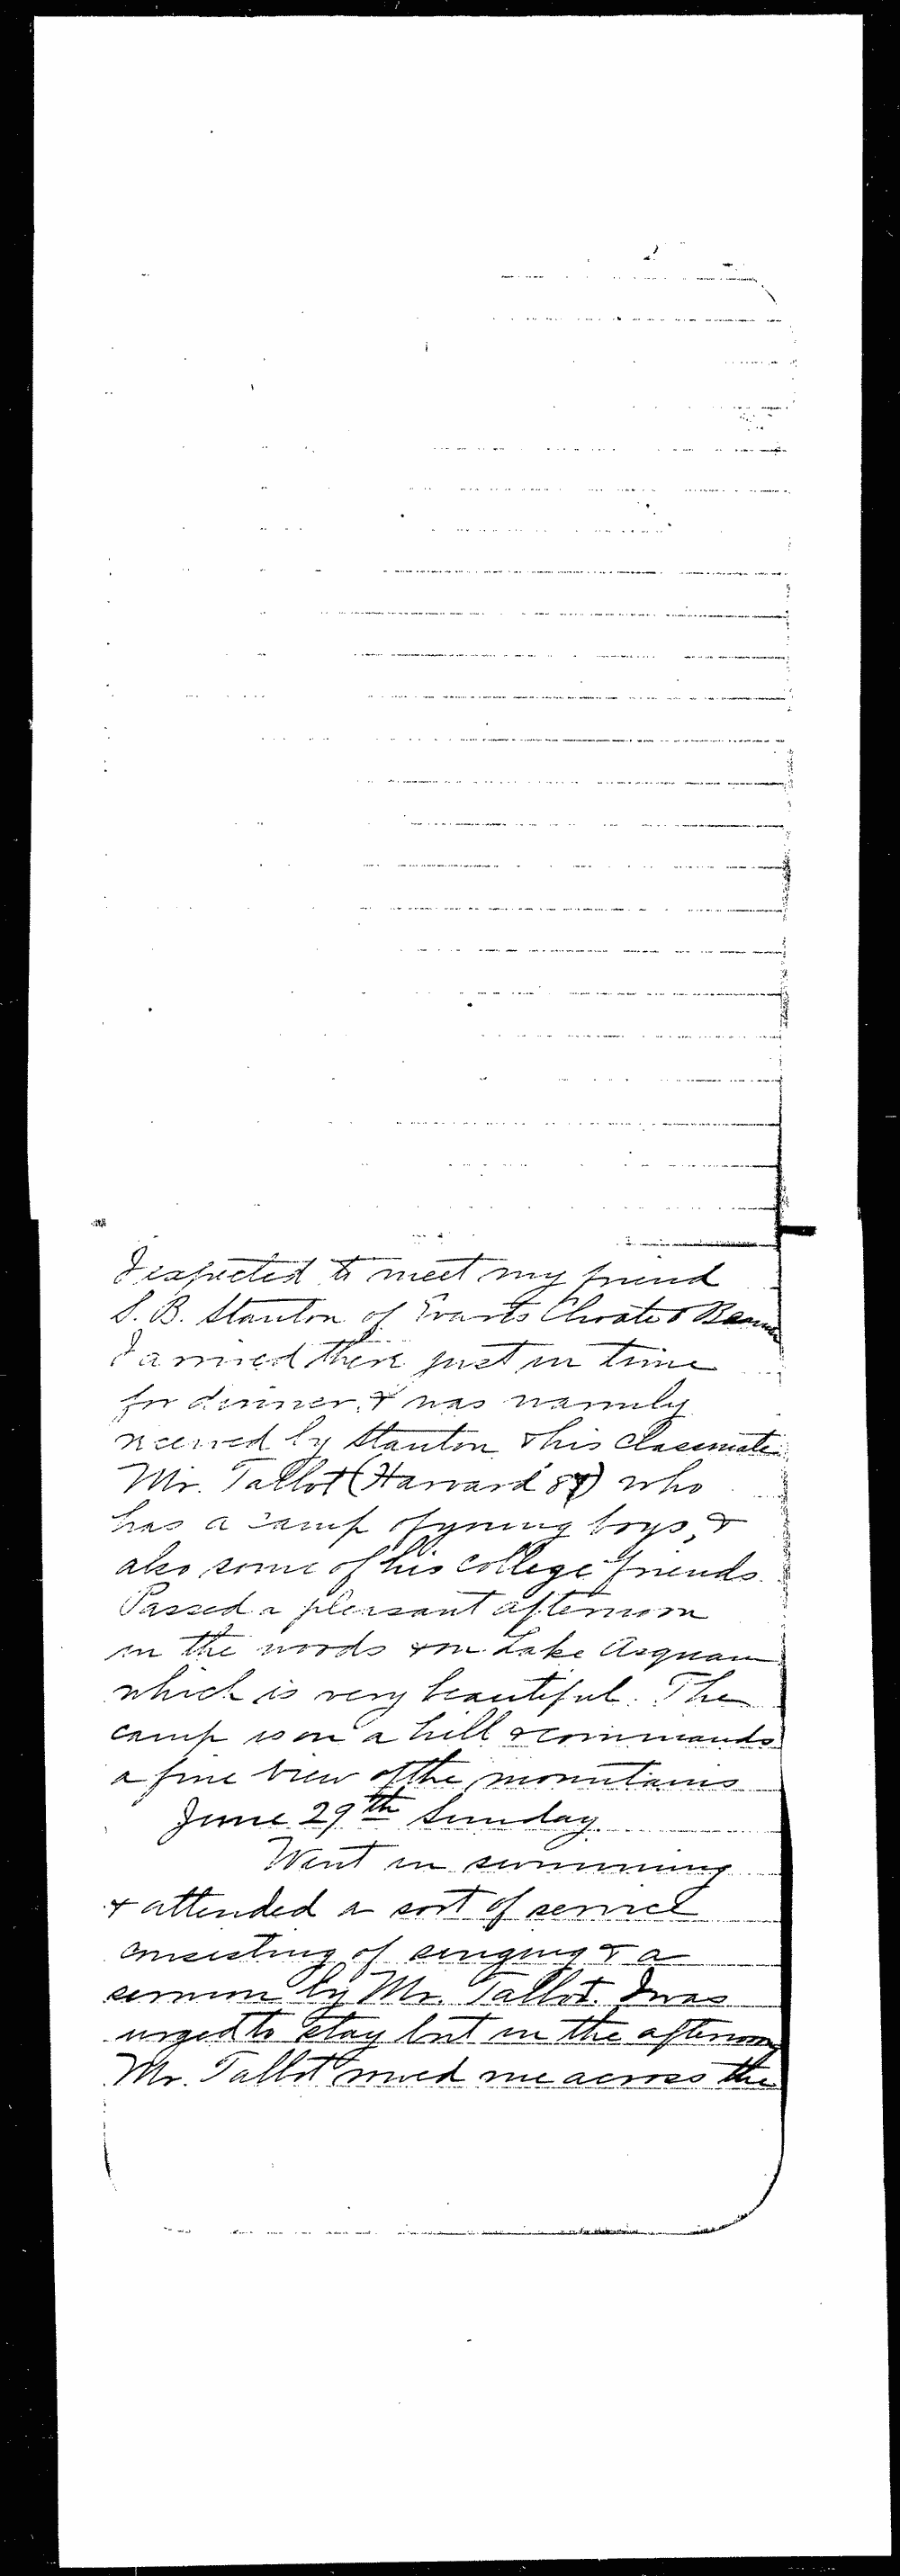 I expected to meet my friend
S. B. Stanton of Evarts Choate & Beaman
I arrived there just in time
for dinner, & was warmly
received by Stanton & his classmate
Mr. Talbot (Harvard '87) who
has a camp of young boys, &
also some of his college friends.
Passed a pleasant afternoon
in the woods & on Lake Asquam
which is very beautiful. The
camp is on a hill & commands
a fine view of the mountains
June 29th Sunday
Went in swimming
& attended a sort of service
consisting of singing & a
sermon by Mr. Talbot. I was
urged to stay but in the afternoon
Mr. Talbot rowed me across the